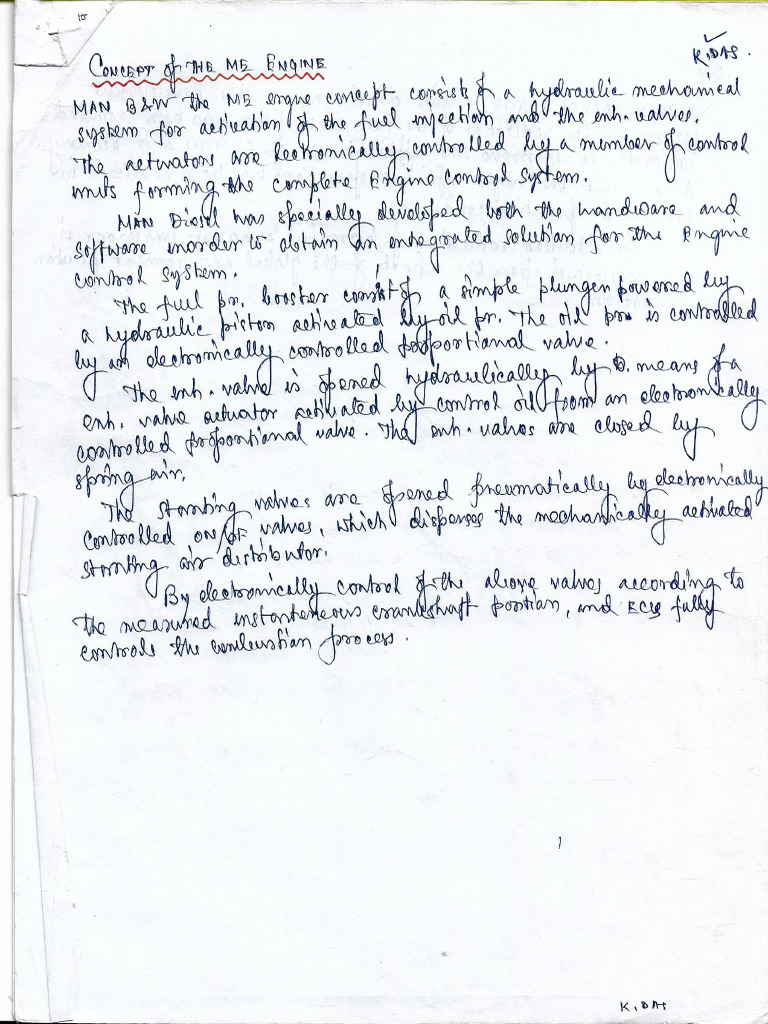 K. DAS.
CONCEPT of THE ME ENGINE
MAN B&W the ME engne concept consists of a hydraulic mechanical
system for activation of the fuel injection and the exh. valves.
The actuators are lectronically controlled by a member of control
units forming the complete Engine control system.
MAN Diesel has specially developed both the handware and
software inorder to obtain an integrated solution for the Engine
control system.
The fuel pr. booster consist of a simple plunger powered by
a hydraulic piston activated by oil pr. The oil pr. is controlled
by an electronically controlled proportional valve.
The exh. valve is opened hydraulically by means of a
exh. valve actuator activated by control oil from an electronically
controlled proportional valve. The exh. valves are closed by
spring air.
The starting valves are opened pneumatically by electronically
controlled on/of valves, which disperses the mechanically activated
starting air distributor.
By electronically control of the above valves according to
the measured instantaneous crankshaft position, and ECS fully
controls the combustian process.
K. DAS